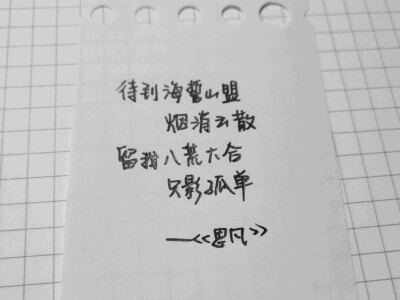 待到海誓山盟
烟消云散
留我八荒六合
只影孤单
——《思凡》